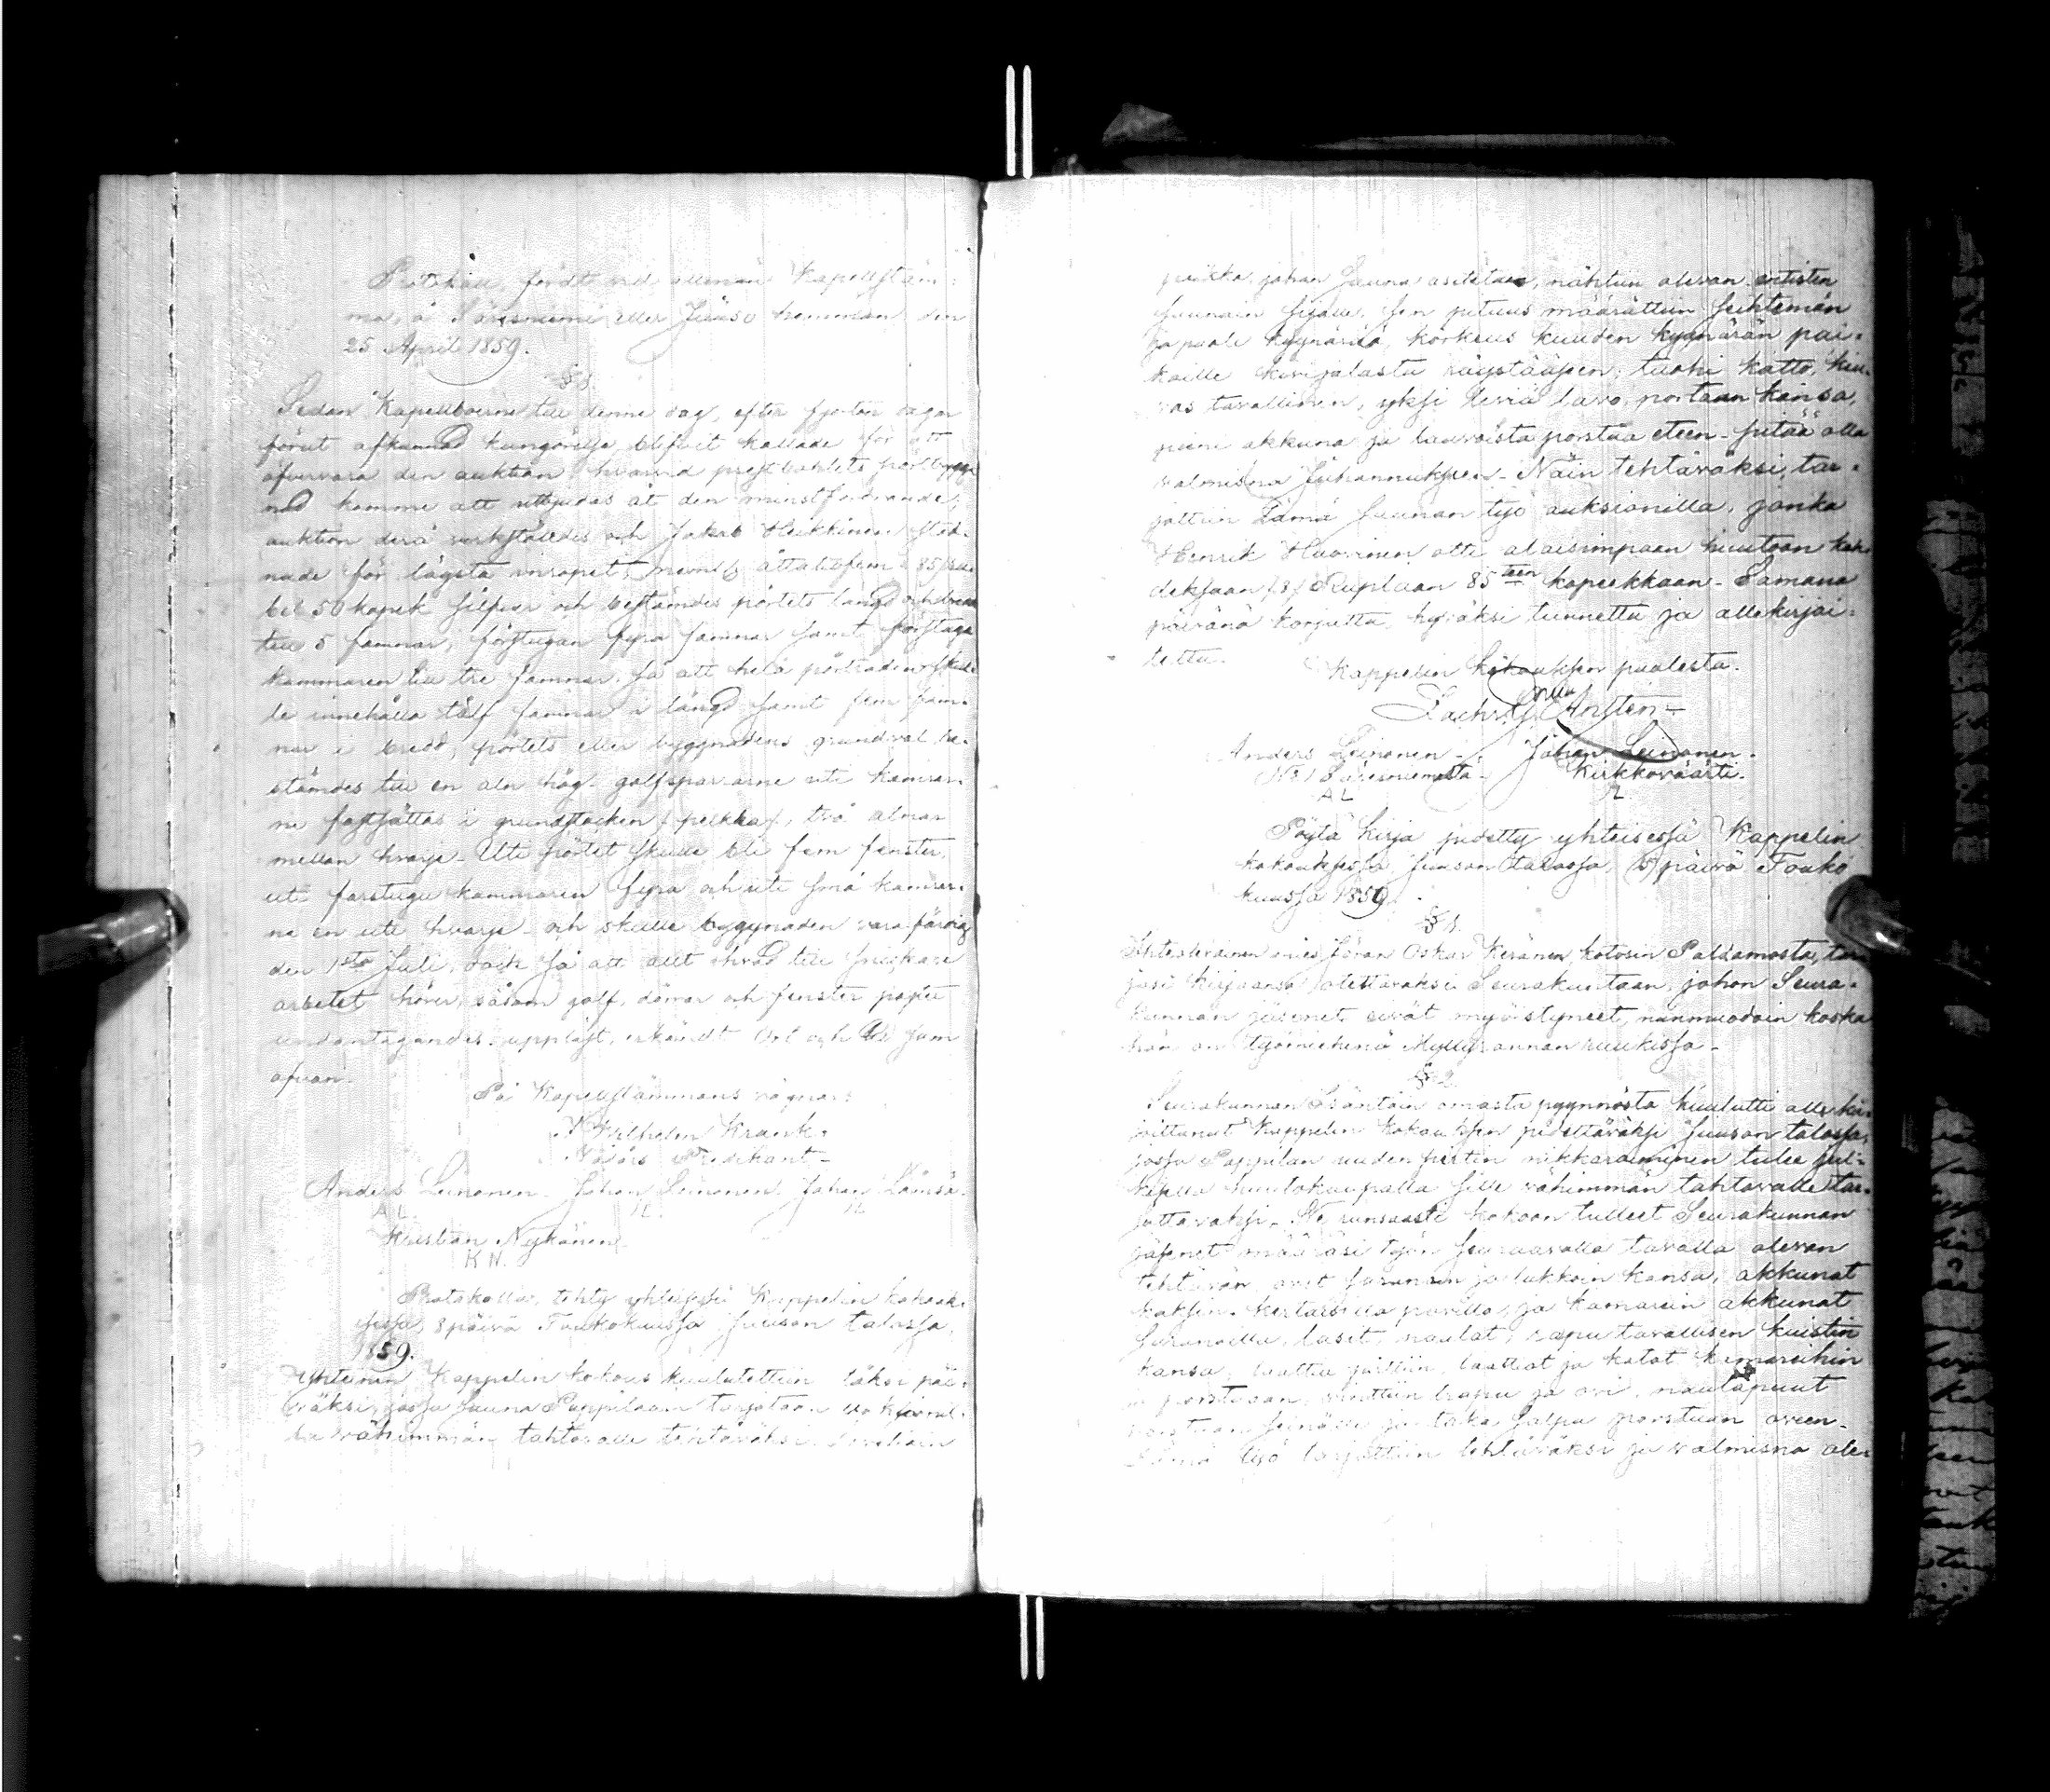 Protokoll, fördt vid allmän Kapellstäm-
ma, å Säresniemi eller Juuso hemman den
25 April 1859.
§ 1.
Sedan Kapellboerne till denne dag, efter fjorton dagar
förut afkunnad kungörelse blifvit kallade för att
öfvervara den auktion hvarvid prestbohlets pörtbygg-
nad komme att utbjudas åt den minstfordrande;
auktion derå verkställdes och Jakob Heikkinen stad-
nade för lägsta inropet, neml. åttatiofem /85/ ru-
bel 50 kopek silfver och bestämdes pörtets längd och bredd
till 5 famnar, förstugan fyra famnar samt förstugu
kammaren till tre famnar. så att hela pörtraden skul-
le innehålla tolf famnar i längd samt fem fam-
nar i bredd; pörtets eller byggnadens grundval be-
stämdes till en aln hög. golfsparrarne uti kamrar-
ne fastsättas i grundstocken /: pelkka :/, två alnar
mellan hvarje. Uti pörtet skulle bli fem fenster,
uti farstugu kammaren fyra och uti små kamrar-
ne en uti hvarje och skulle byggnaden vara färdig
den 1sta Juli, dock så att allt hvad till snickare
arbetet hörer, såsom golf, dörrar och fenster
undantagandes. uppläst, erkändt Ort och tid som
ofvan.
På Kapellstämmans vägnar:
Wilhelm Krank.
Nådårs Predikant.
Anders Leinonen. Johan Leinonen. Johan Lämsä.
A L. I L. I L.
Kristian Nykänen
K N.
Protokolla, tehty yhteisessä Kappelin kokouk-
sessa, 8 päivä Toukokuussa Juuson talossa
1859.
Yhteinen Kappelin kokous kuulutettiin täksi päi-
väksi, jossa Sauna Pappilaan tarjotaan
vähimmän tahtovalle tehtäväksi.
paikka, johon Sauna asetetaan, nähtiin olevan entisten
Saunain sijalle, sen pituus määrättiin seihtemän
ja puoli kyynäriä, korkeus kuuden kyynärän pai-
koille kivijalasta räystääseen, tuohi katto, kiu-
vas tavallinen, yksi leviä lavo, portaan kansa,
pieni akkuna ja lauvoista porstua eteen. pitää olla
valmisna Juhannuksen. Näin tehtäväksi, tar-
jottiin Tämä Saunan työ auksionilla, jonka
Henrik Huovinen otti alaisimpaan huutoon kah-
deksaan /8/ Ruplaan 85 teen kopeekkaan. Samana
päivänä korjattu, hyväksi tunnettu ja allekirjoi-
tettu.
Kappelin Kokouksen puolesta.
Anders Leinonen. Johan Leinonen.
No 1 Säresniemestä. Kirkkoväärti.
A L I L.
Pöytä kirja pidetty yhteisessä Kappelin
kokouksessa Juuson talossa, 15 päivä Touko
kuussa 1859.
§ 1.
Itsellinen mies Göran Oskar Keränen, kotosin Paldamosta, tar-
josi kirjaansa otettavaksi Seurakuntaan, johon Seura-
kunnan jäsenet eivät myöistyneet, niinmuodoin koska
hän on työmiehenä Myllyrannan ruukissa.
§ 2.
Seurakunnan Isäntäin omasta pyynnöstä kuulutti allekir-
joittanut Kappelin kokouksen pidettäväksi Juuson talossa,
jossa Pappilan uuden pirtin nikkaroiminen tulee jul-
kisella huutokaupalla sille vähimmän tahtovalle tar-
jottavaksi. Ne runsaasti kokoon tulleet Seurakunnan
jäsenet määräsi työn seuraavalla tavalla olevan
tehtävän, ovet saranain ja lukkoin kansa, akkunat
kaksin kertaisilla puvilla, ja kamariin akkunat
Saranoilla, lasit, naulat, rapu tavallisen kuistin
kansa, laattia pirttiin, laattiat ja katot kamareihin
ja porstuaan, vinttiin trapu ja ovi, naulapuut
porstuan seinälle ja taka salpa porstuan oveen.
Tämä työ tarjottiin tehtäväksi ja valmisna ole-